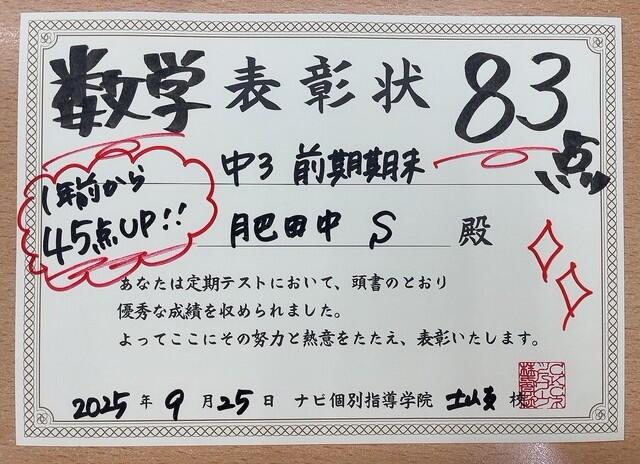 数学 表彰状 83点
中3 前期期末
1年前から
45点UP!!
肥田中 S 殿
あなたは定期テストにおいて、頭書のとおり
優秀な成績を収められました。
よってここにその努力と熱意をたたえ、表彰いたします。
2025年9月25日 ナビ個別指導学院 土岐校